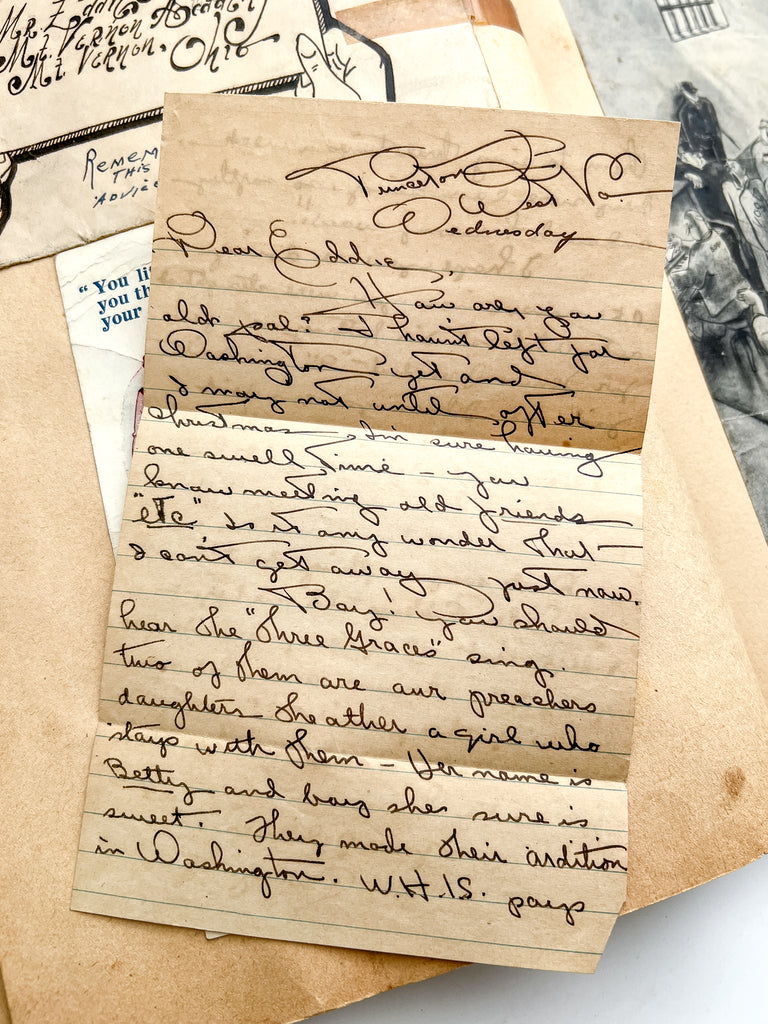 Mr. Eddie
Mt. Vernon Academy
Mt. Vernon, Ohio
Remem
this
advice
"You li
you th
your
Princeton W. Va.
West
Wednesday
Dear Eddie,
How are you
old pal? I haven't left for
Washington yet and
I may not until after
Christmas. I'm sure having
one swell time – you
know meeting old friends
"etc". Is it any wonder that
I can't get away just now.
Boy! you should
hear the "Three Graces" sing.
two of them are our preachers
daughters the other a girl who
stays with them – Her name is
Betty and boy she sure is
sweet. They made their audition
in Washington. W.H.I.S. pays